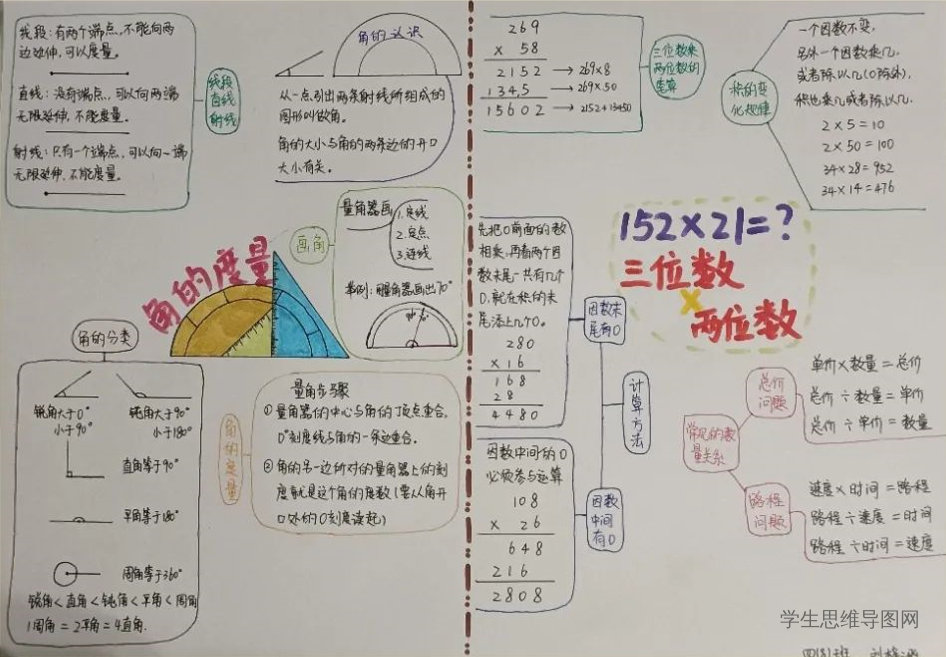 线段：有两个端点，不能向两
边延伸，可以度量。
直线：没有端点，可以向两端
无限延伸，不能度量。
射线：只有一个端点，可以向一端
无限延伸，不能度量。
线段
直线
射线
角的认识
从一点引出两条射线所组成的
图形叫做角。
角的大小与角的两条边的开口
大小有关。
角的度量
画角
量角器画
1.定线
2.定点
3.连线
举例：用量角器画出70°
角的分类
锐角大于0°
小于90°
钝角大于90°
小于180°
直角等于90°
平角等于180°
周角等于360°
锐角<直角<钝角<平角<周角
1周角=2平角=4直角.
角的度量
量角步骤
①量角器的中心与角的顶点重合，
0°刻度线与角的一条边重合。
②角的另一边所对的量角器上的刻
度就是这个角的度数(要从角开
口处的0刻度读起)
269
× 58
2152 → 269×8
1345 → 269×50
15602 → 2152+13450
三位数乘
两位数的
笔算
积的变
化规律
一个因数不变，
另外一个因数乘几，
或者除以几(0除外)，
积也乘几或者除以几.
2×5=10
2×50=100
34×28=952
34×14=476
152×21=?
三位数
×
两位数
先把0前面的数
相乘，再看两个因
数末尾一共有几个
0，就在积的末
尾添上几个0。
280
×16
168
28
4480
因数末
尾有0
计算方法
因数中间的0
必须参与运算
108
× 26
648
216
2808
因数
中间
有0
常见的数
量关系
总价
问题
单价×数量=总价
总价÷数量=单价
总价÷单价=数量
路程
问题
速度×时间=路程
路程÷速度=时间
路程÷时间=速度
学生思维导图网